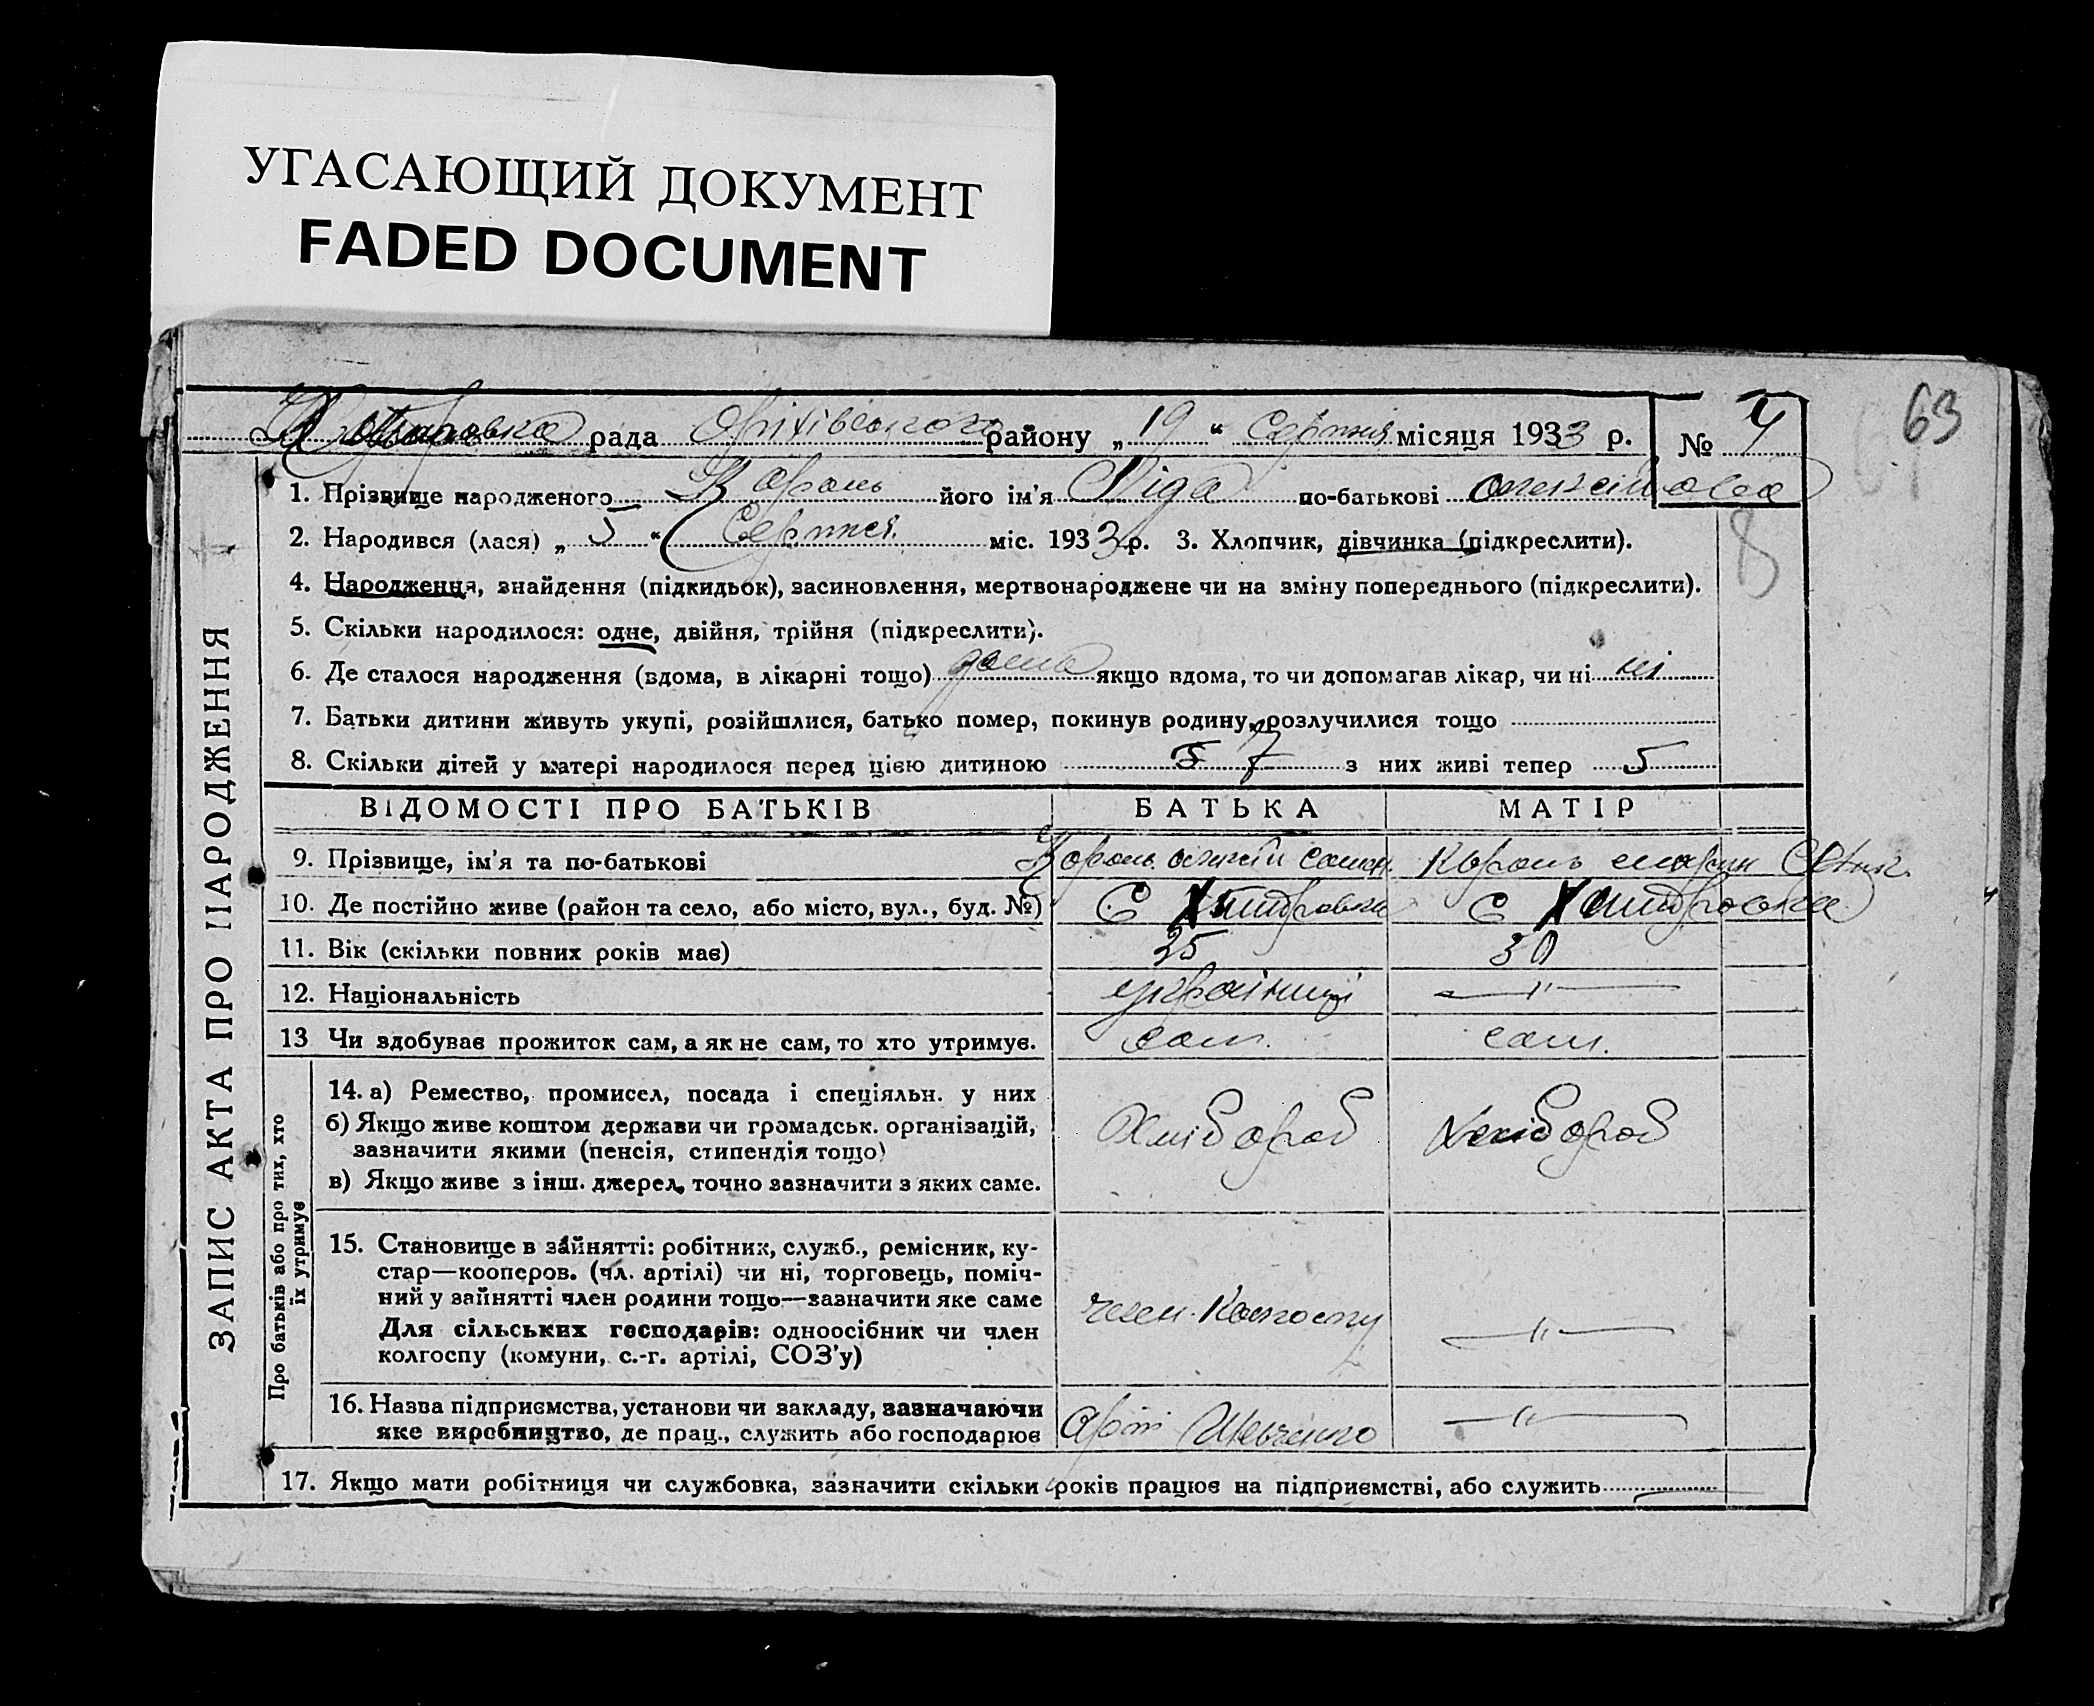 УГАСАЮЩИЙ ДОКУМЕНТ
FADED DOCUMENT
63
рада Оріхівського району „19“ Серпня місяця 1933 р. № 4
ЗАПИС АКТА ПРО НАРОДЖЕННЯ
1. Прізвище народженого Король його ім’я Ліда по-батькові
2. Народився (лася) „5“ Серпня міс. 1933 р. 3. Хлопчик, дівчинка (підкреслити).
8
4. Народження, знайдення (підкидьок), засиновлення, мертвонароджене чи на зміну попереднього (підкреслити).
5. Скільки народилося: одне, двійня, трійня (підкреслити).
6. Де сталося народження (вдома, в лікарні тощо) дома якщо вдома, то чи допомагав лікар, чи ні ні
7. Батьки дитини живуть укупі, розійшлися, батько помер, покинув родину, розлучилися тощо
8. Скільки дітей у матері народилося перед цією дитиною 7 з них живі тепер 5
ВІДОМОСТІ ПРО БАТЬКІВ БАТЬКА МАТІР
9. Прізвище, ім’я та по-батькові Король Король
10. Де постійно живе (район та село, або місто, вул., буд. №) С С
11. Вік (скільки повних років має) 35 30
12. Національність українці —〃—
13 Чи здобуває прожиток сам, а як не сам, то хто утримує. сам. сам.
Про батьків або про тих, хто
їх утримує
14. а) Ремество, промисел, посада і спеціяльн. у них
б) Якщо живе коштом держави чи громадськ. організацій,
зазначити якими (пенсія, стипендія тощо)
Хлібороб Хлібороб
в) Якщо живе з інш. джерел, точно зазначити з яких саме.
15. Становище в зайнятті: робітник, служб., ремісник, ку-
стар—кооперов. (чл. артілі) чи ні, торговець, поміч-
ний у зайнятті член родини тощо—зазначити яке саме
член. Колгоспу —〃—
Для сільських господарів: одноосібник чи член
колгоспу (комуни, с.-г. артілі, СОЗ’у)
16. Назва підприємства, установи чи закладу, зазначаючи
яке виробництво, де прац., служить або господарює Арт Шевченко —〃—
17. Якщо мати робітниця чи службовка, зазначити скільки років працює на підприємстві, або служить